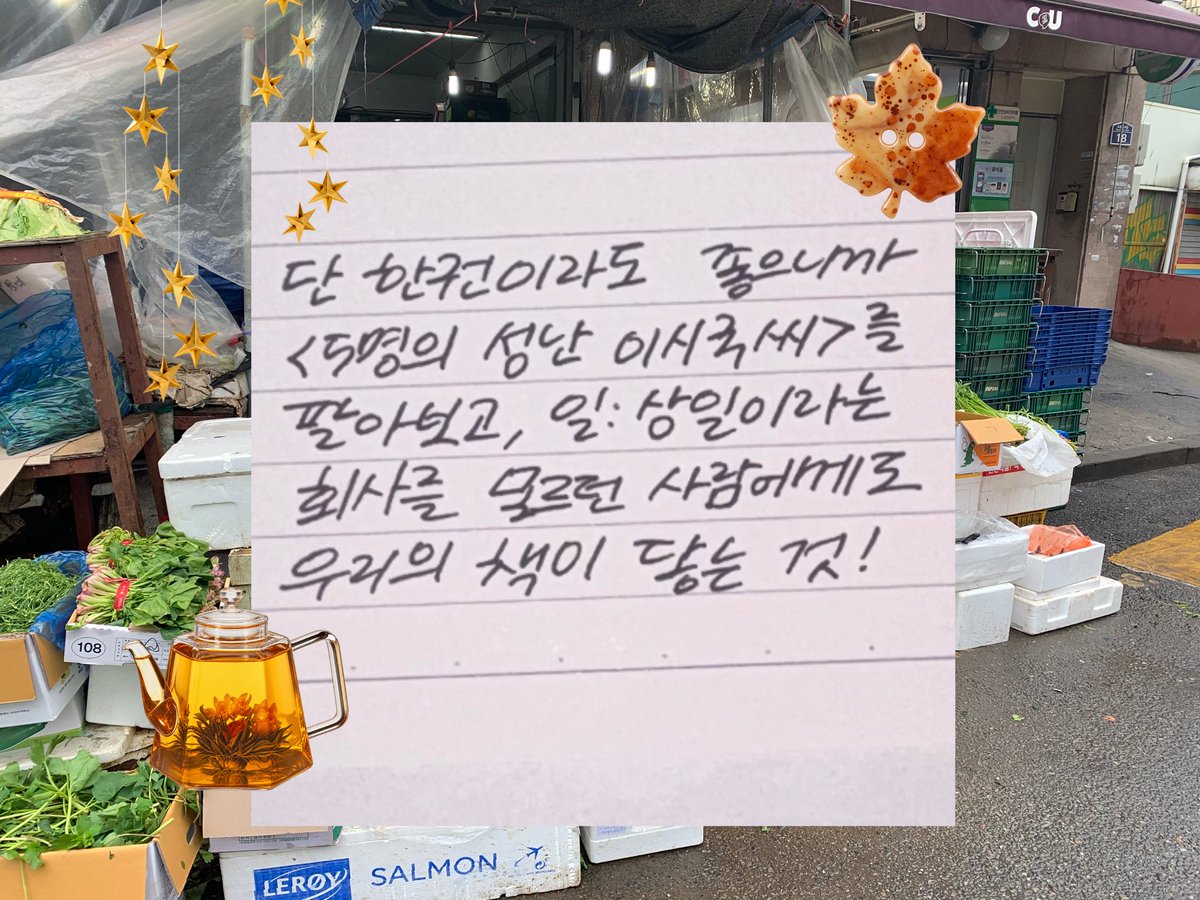 CU
18
단 한권이라도 좋으니까
<5명의 성난 이시국씨>를
팔아보고, 일:상일이라는
회사를 모르던 사람에게도
우리의 책이 닿는 것!
108
LERØY
SALMON